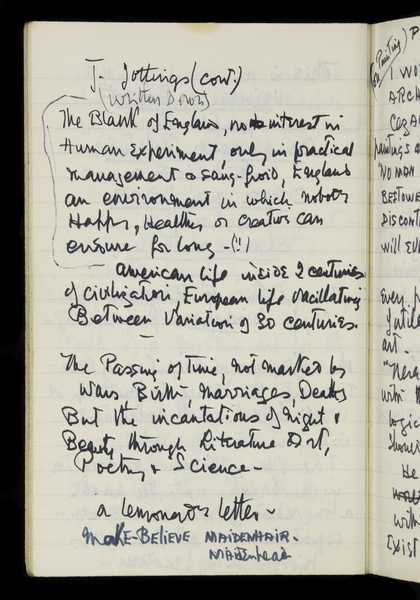 J. Jottings (cont.)
(Written Down)
The Blank of England, no interest in
Human Experiment, only in practical
management & sang-froid, England
an environment in which nobody
Happy, Healthy or creative can
endure for long - (!!)
American life inside 2 centuries
of civilization, European life oscillating
Between Variation of 30 centuries.
The Passing of Time, not marked by
Wars, Birth, Marriages, Deaths
But the incantations of Night &
Beauty through Literature Art,
Poetry & Science -
a lemonous letter -
Make-Believe MAIDENHAIR.
Maidenhead
(For Painting)
I WO
ARCH
paintings a
NO MAN
BESTOWE
DISCONT
will
Every
art -
with
logic
He
with
EXIST